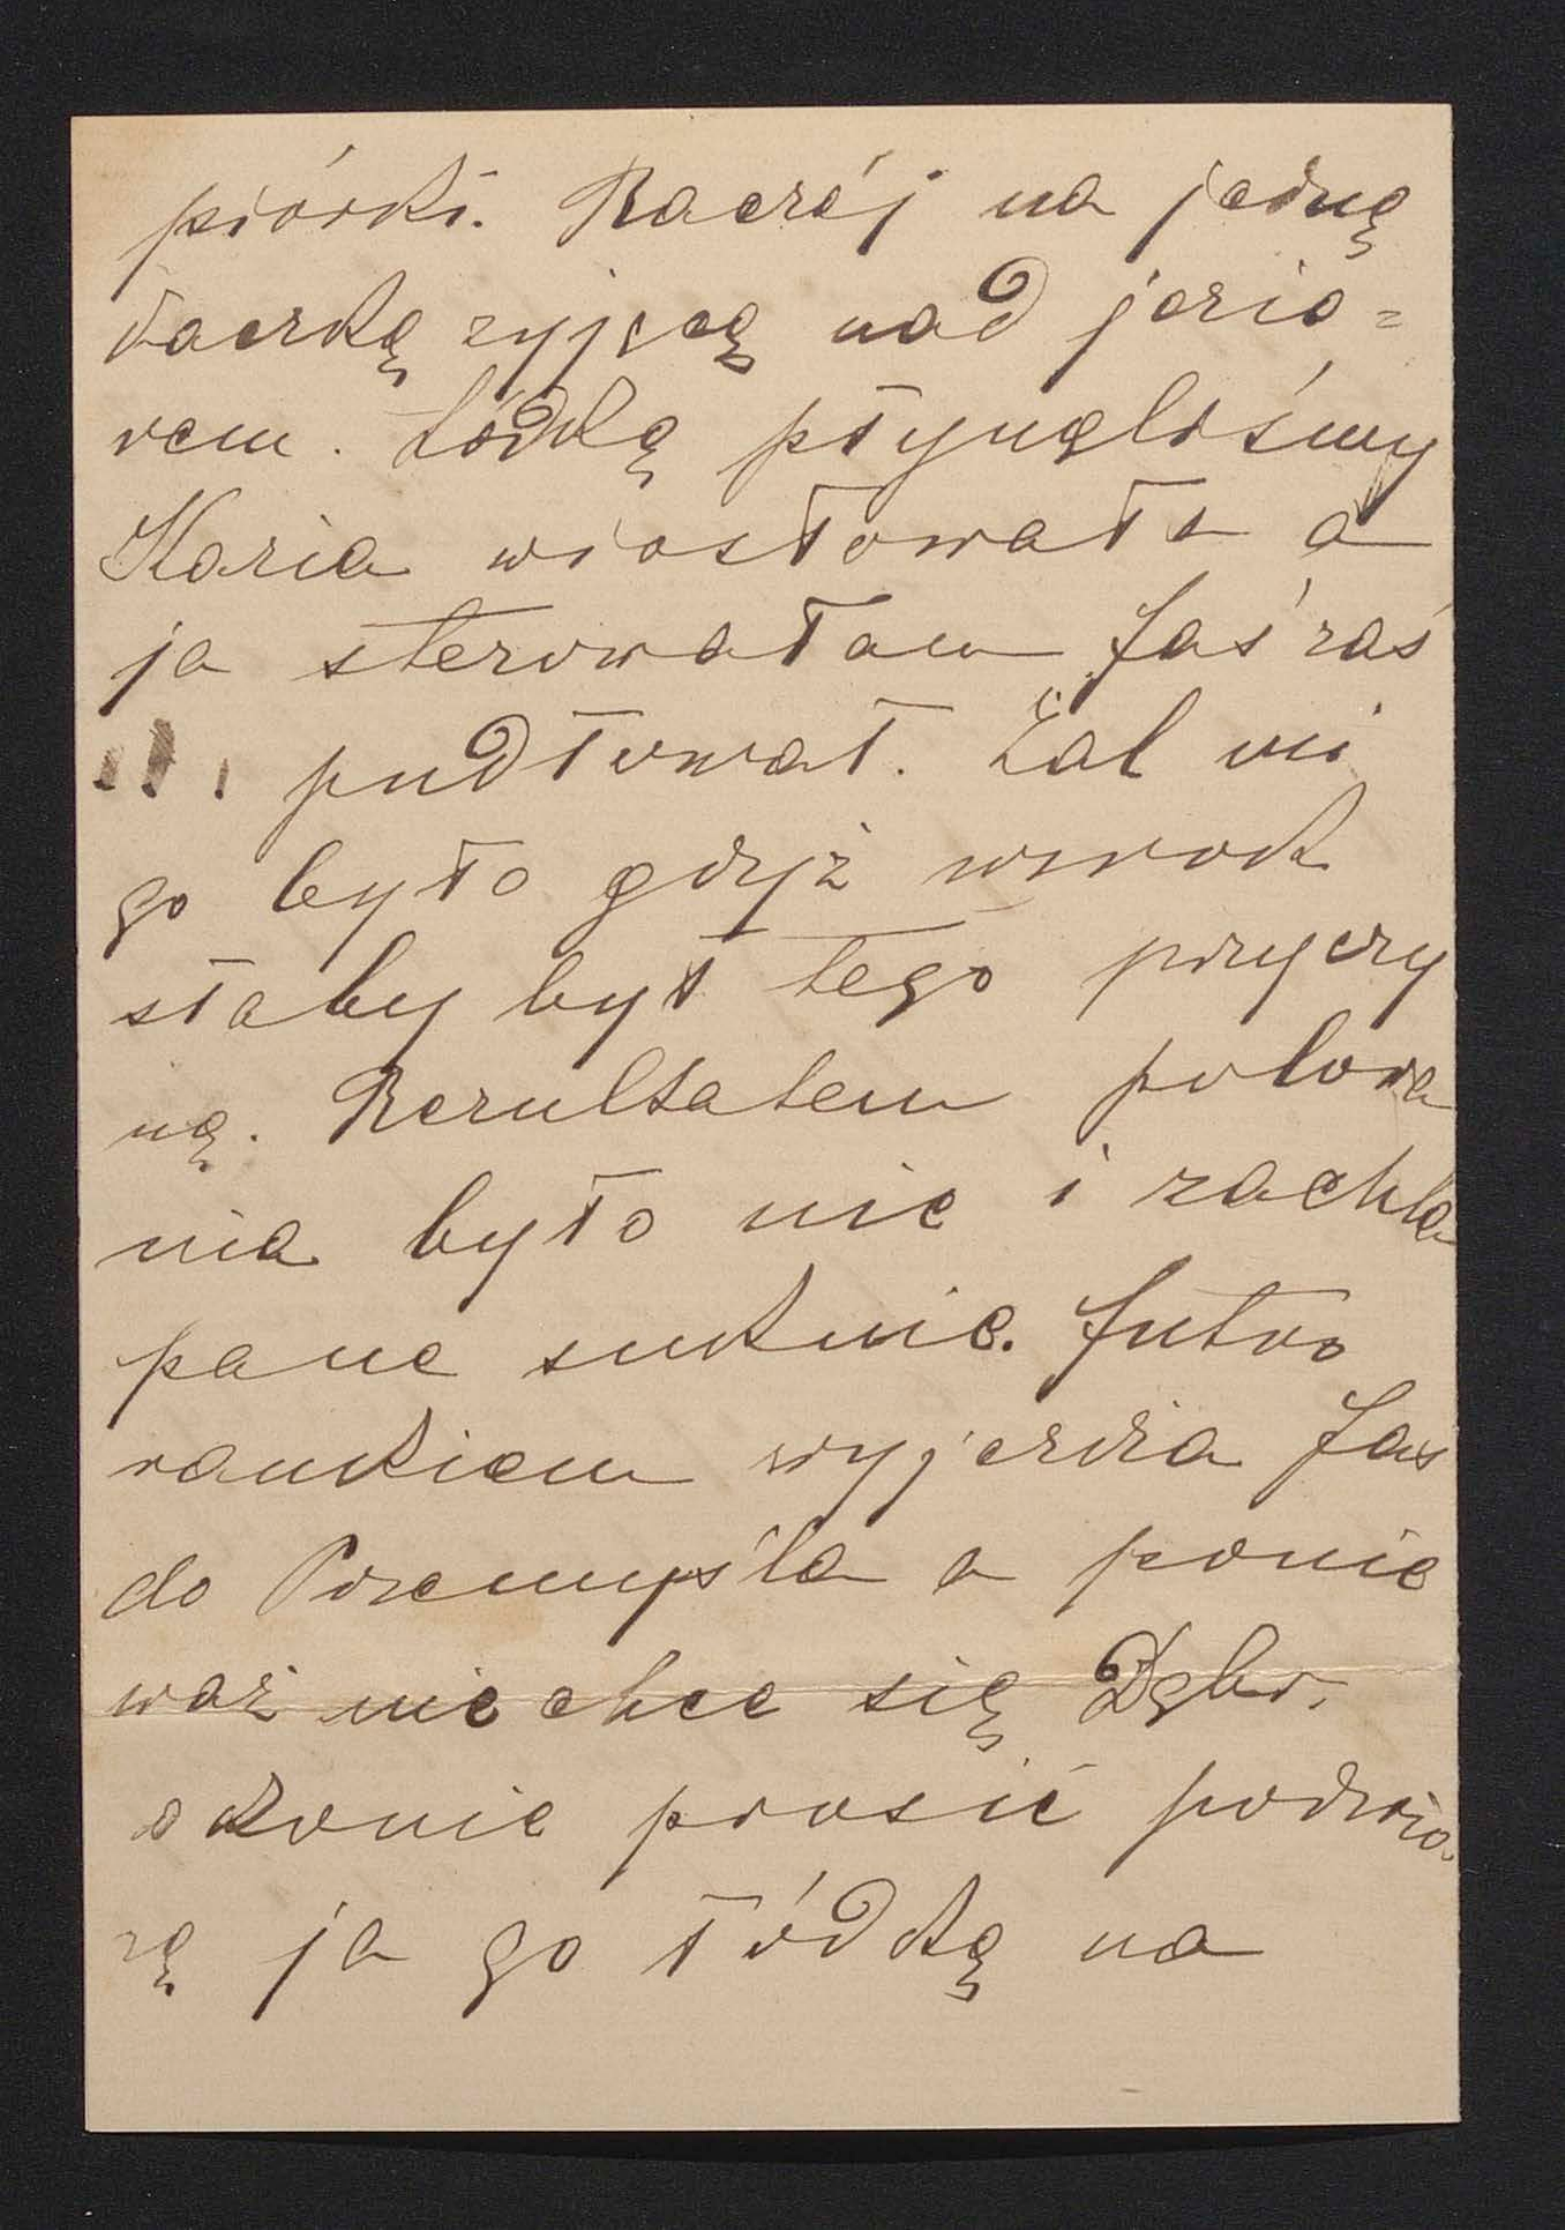 piórki. Raczéj na jedną
kaczkę żyjącą nad jezio=
rem. Łódką płynęliśmy
Kazia wiosłowała a
ja sterowałam Jaś zaś
pudłował. Żal mi
go było gdyż wzrok
słaby był tego przyczy
ną. Rezultatem polowa
nia było nic i zachla
pane suknie. Jutro
rankiem wyjeżdża Jaś
do Przemyśla a ponie
waż nie chce się Dąbr.
o konie prosić podwio-
zę ja go łódką na